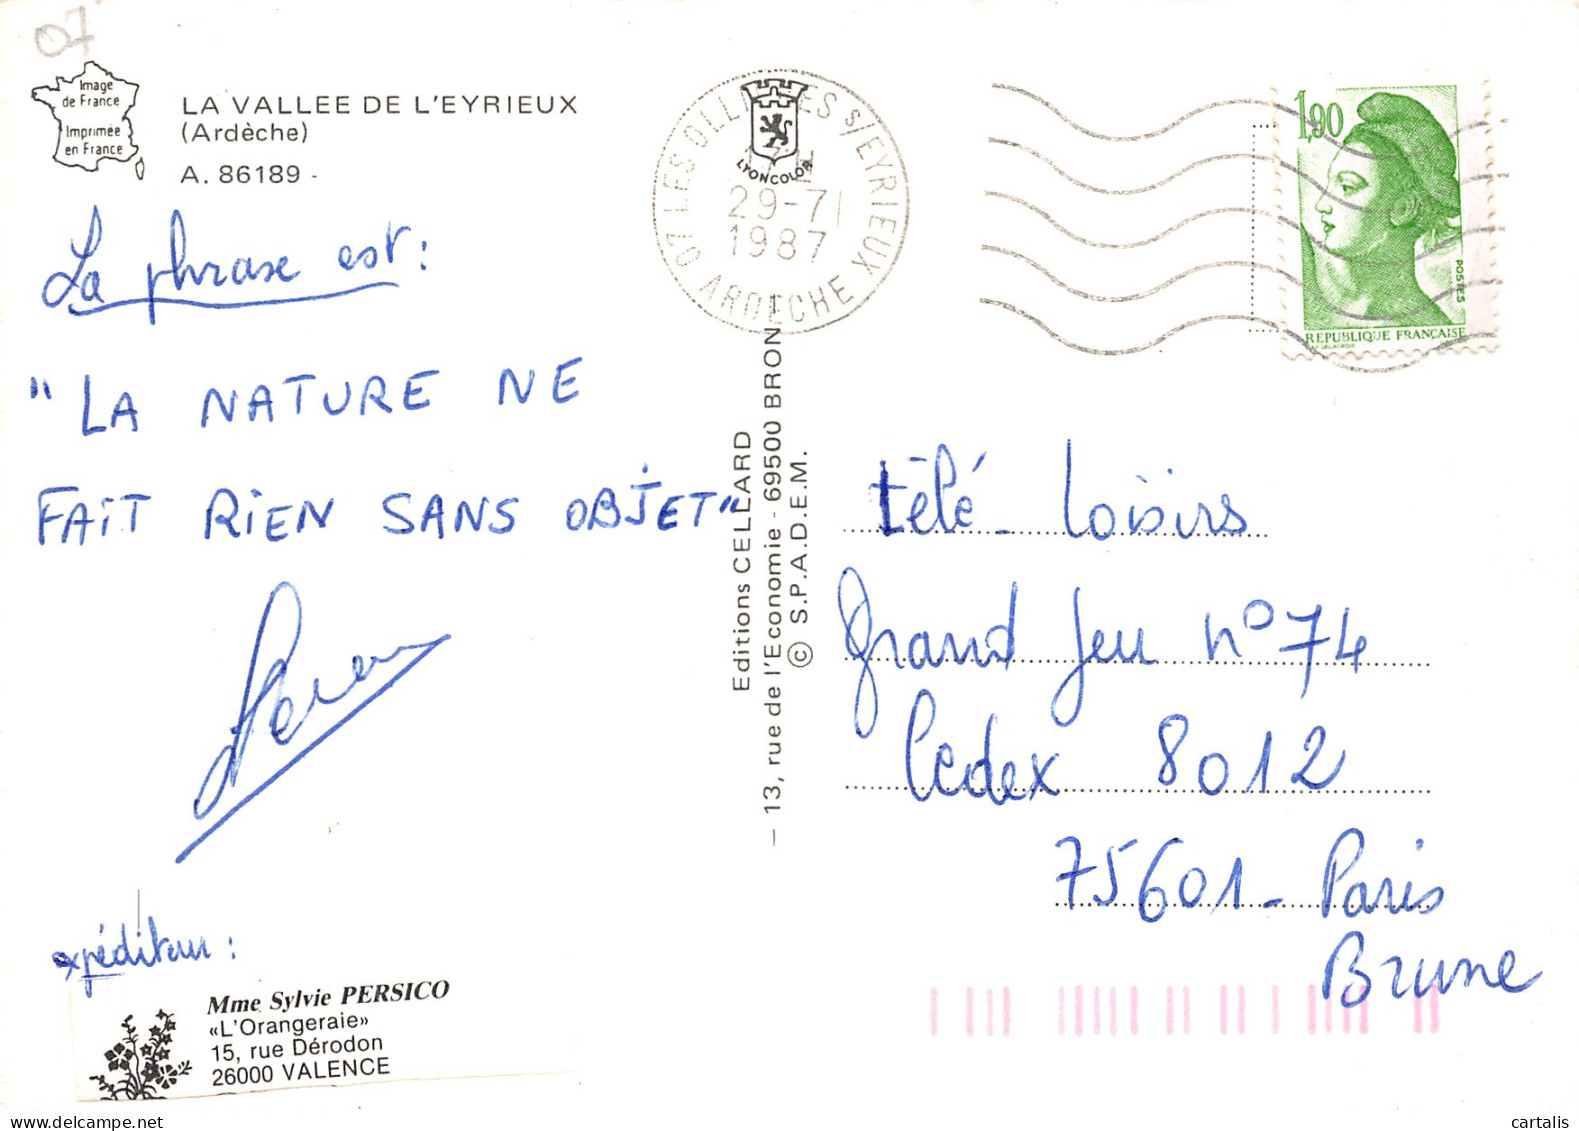 07
Image
de France
Imprimée
en France
LA VALLEE DE L'EYRIEUX
(Ardèche)
A. 86189 -
La phrase est :
"LA NATURE NE
FAIT RIEN SANS OBJET"
expéditeur :
Mme Sylvie PERSICO
«L'Orangeraie»
15, rue Dérodon
26000 VALENCE
LYONCOLOR
07 LES OLLI ES S/EYRIEUX
29-7
1987
ARDECHE
Editions CELLARD
— 13, rue de l'Economie - 69500 BRON
© S.P.A.D.E.M.
1,90
POSTES
REPUBLIQUE FRANÇAISE
télé-Loisirs
Grand Jeu n° 74
Cedex 8012
75601 - Paris
Brune
www.delcampe.net
cartalis